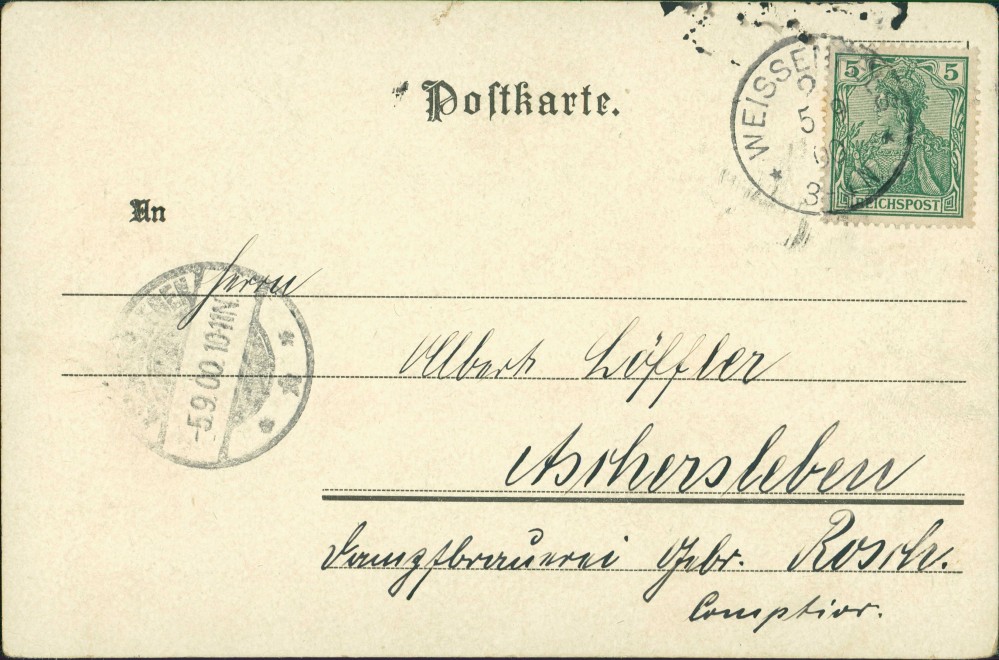 Postkarte.
WEISSEN
5
3-4N
5 5
REICHSPOST
An
Herrn
-5.9.00.10-11N.
Albert Löffler
Aschersleben
Dampfbrauerei Gebr. Rosch.
Comptior.